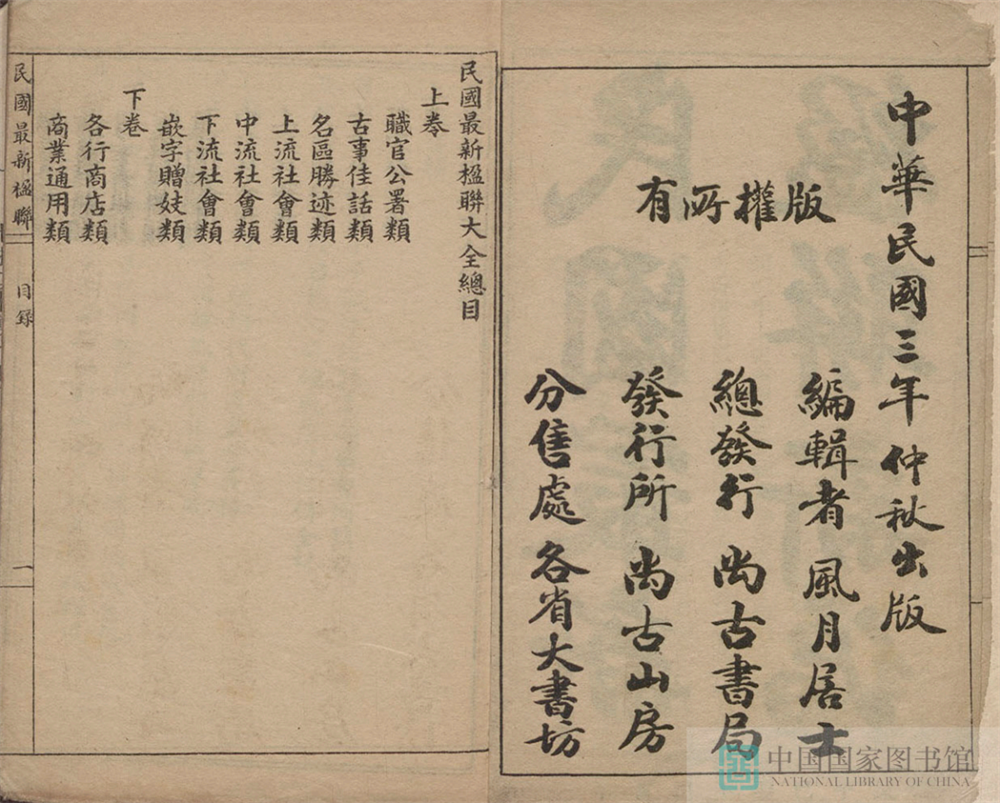 中華民國三年仲秋出版
版權所有
編輯者 風月居士
總發行 尚古書局
發行所 尚古山房
分售處 各省大書坊
民國最新楹聯大全總目
上卷
職官公署類
古事佳話類
名區勝迹類
上流社會類
中流社會類
下流社會類
嵌字贈妓類
下卷
各行商店類
商業通用類
民國最新楹聯 目錄 一
中国国家图书馆
NATIONAL LIBRARY OF CHINA